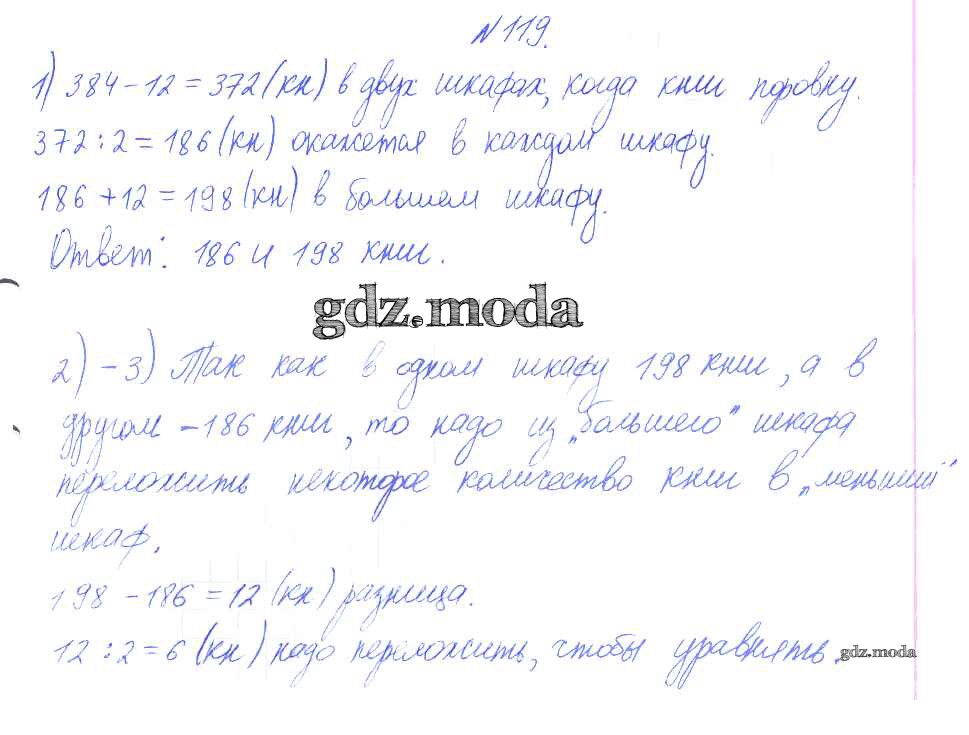 N119.
1) 384 - 12 = 372 (кн) в двух шкафах, когда книг поровну.
372 : 2 = 186 (кн) окажется в каждом шкафу.
186 + 12 = 198 (кн) в большем шкафу.
Ответ: 186 и 198 книг.
gdz.moda
2) - 3) Так как в одном шкафу 198 книг, а в
другом - 186 книг, то надо из „большего" шкафа
переложить некоторое количество книг в „меньший"
шкаф.
198 - 186 = 12 (кн) разница.
12 : 2 = 6 (кн) надо переложить, чтобы уравнять.
gdz.moda